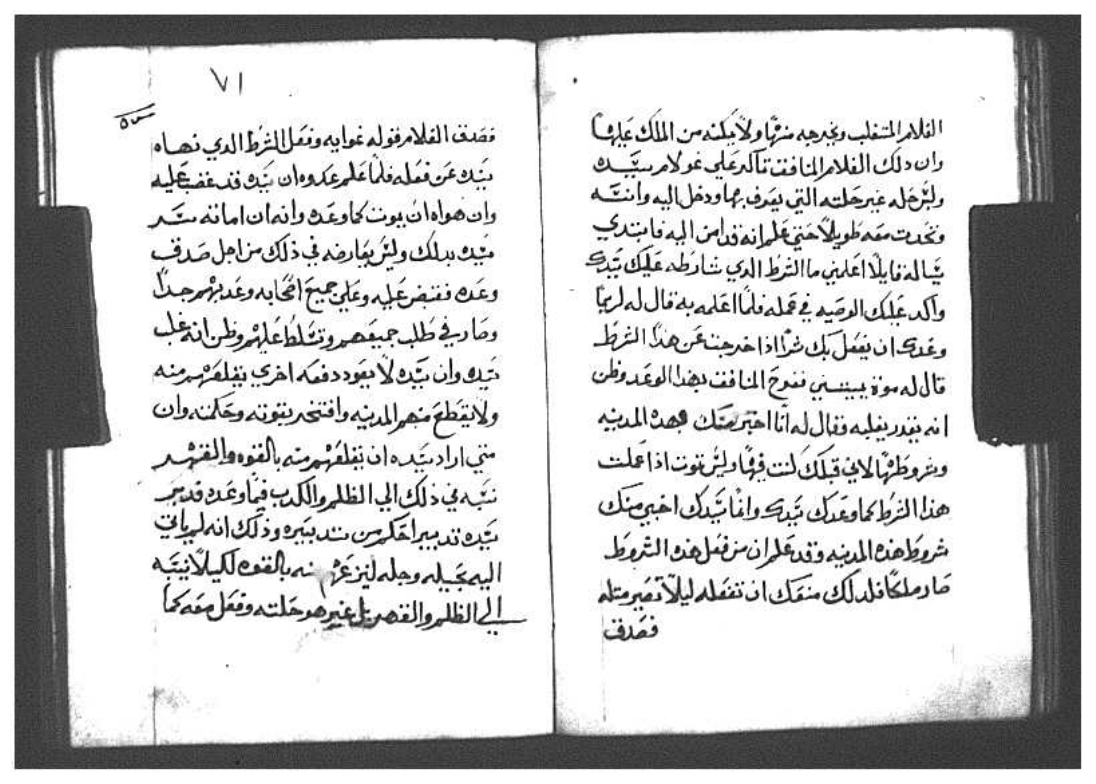 الغلام المتغلب ويخرجه منها ولا يمكنه من الملك عليها
وان دلك الغلام المنافق تاكد علي غولام سيده
ولبس حله غير حلته التي يعرف بها ودخل اليه وانسه
وتحدت معه طويلاً حتي علم انه قد امن اليه فابتدي
يساله قايلاً اعلمني ما الشرط الدي شارطه عليك سيدك
واكد عليك الوصيه في عمله فلما اعلمه به قال له لربما
وعدك ان يفعل بك شراً ادا خرجت عن هدا الشرط
قال له موة يميتني ففرح المنافق بهدا الوعد وظن
انه يقدر يغلبه فقال له انا اخبر منك بهده المدينه
وشروطها لاني قبلك كنت فيها وليس تموت ادا عملت
هدا الشرط كما وعدك سيدك وانما سيدك اخبر منك
بشروط هده المدينه وقد علم ان من فعل هده الشروط
صار ملكاً فلدلك منعك ان تفعله ليلاً تصير متله
فصدق
٧١
فصدق الغلام قوله غوايه وفعل الشرط الدي نهاه
سيده عن فعله فلما علم عدوه ان سيده قد غضب عليه
وان هواه ان يموت كما وعده وانه ان اماته سر
سيده بدلك وليس يعارضه في ذلك من اجل صدق
وعده فقبض عليه وعلي جميع اصحابه وعدبهم جداً
وصار في طلب جميعهم وتسلط عليهم وظن انه غلب
سيده وان سيده لا يعود دفعه اخري يقلعهم منه
ولا يقطع منهم المدينه وافتخر بقوته وحكمته وان
متي اراد سيده ان يقلعهم منه بالقوه والقهر
نسبه في ذلك الي الظلم والكدب فيما وعده قد بر
سيده تدبيرا احكم من تدبيره وذلك انه لم ياتي
اليه بحيله وجله لينزعهم منه بالقوه لكيلا ينسبه
الي الظلم والقهر بل غير هو حلته وفعل معه كما